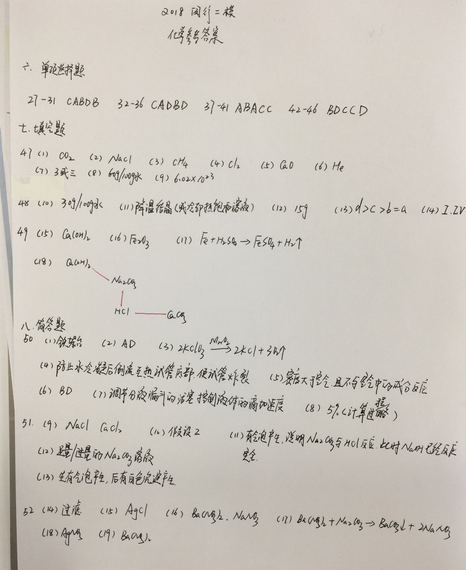 2018 闵行二模
化学参考答案
六、单项选择题
27-31 CABDB 32-36 CADBD 37-41 ABACC 42-46 BDCCD
七、填空题
47 (1) CO₂ (2) NaCl (3) CH₄ (4) Cl₂ (5) CaO (6) He
(7) 3或三 (8) 60g/100g水 (9) 6.02×10²³
48 (10) 30g/100g水 (11) 降温结晶(或冷却热饱和溶液) (12) 15g (13) d>c>b=a (14) I.IV
49 (15) Ca(OH)₂ (16) Fe₂O₃ (17) Fe+H₂SO₄→FeSO₄+H₂↑
(18) Ca(OH)₂
Na₂CO₃
HCl CaCO₃
八、简答题
50 (1) 铁架台 (2) AD (3) 2KClO₃ MnO₂→ 2KCl+3O₂↑
(4) 防止水冷凝后倒流至热试管底部,使试管炸裂 (5) 密度大于空气,且不与空气中的成分反应
(6) BD (7) 调节分液漏斗的活塞控制液体的滴加速度 (8) 5% (计算过程略)
51. (9) NaCl CaCl₂ (10) 假设2 (11) 有气泡产生,说明Na₂CO₃与HCl反应,此时NaOH已经反应
完全
(12) 足量/过量的Na₂CO₃溶液
(13) 先有气泡产生,后有白色沉淀产生
52 (14) 过滤 (15) AgCl (16) Ba(NO₃)₂、NaNO₃ (17) Ba(NO₃)₂+Na₂CO₃→BaCO₃↓+2NaNO₃
(18) AgNO₃ (19) Ba(NO₃)₂